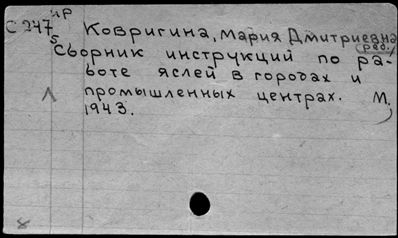 ир
С 247
5
Ковригина, Мария Дмитриевна
ред.
Сборник инструкций по ра-
боте яслей в городах и
промышленных центрах. М.,
1943.
8